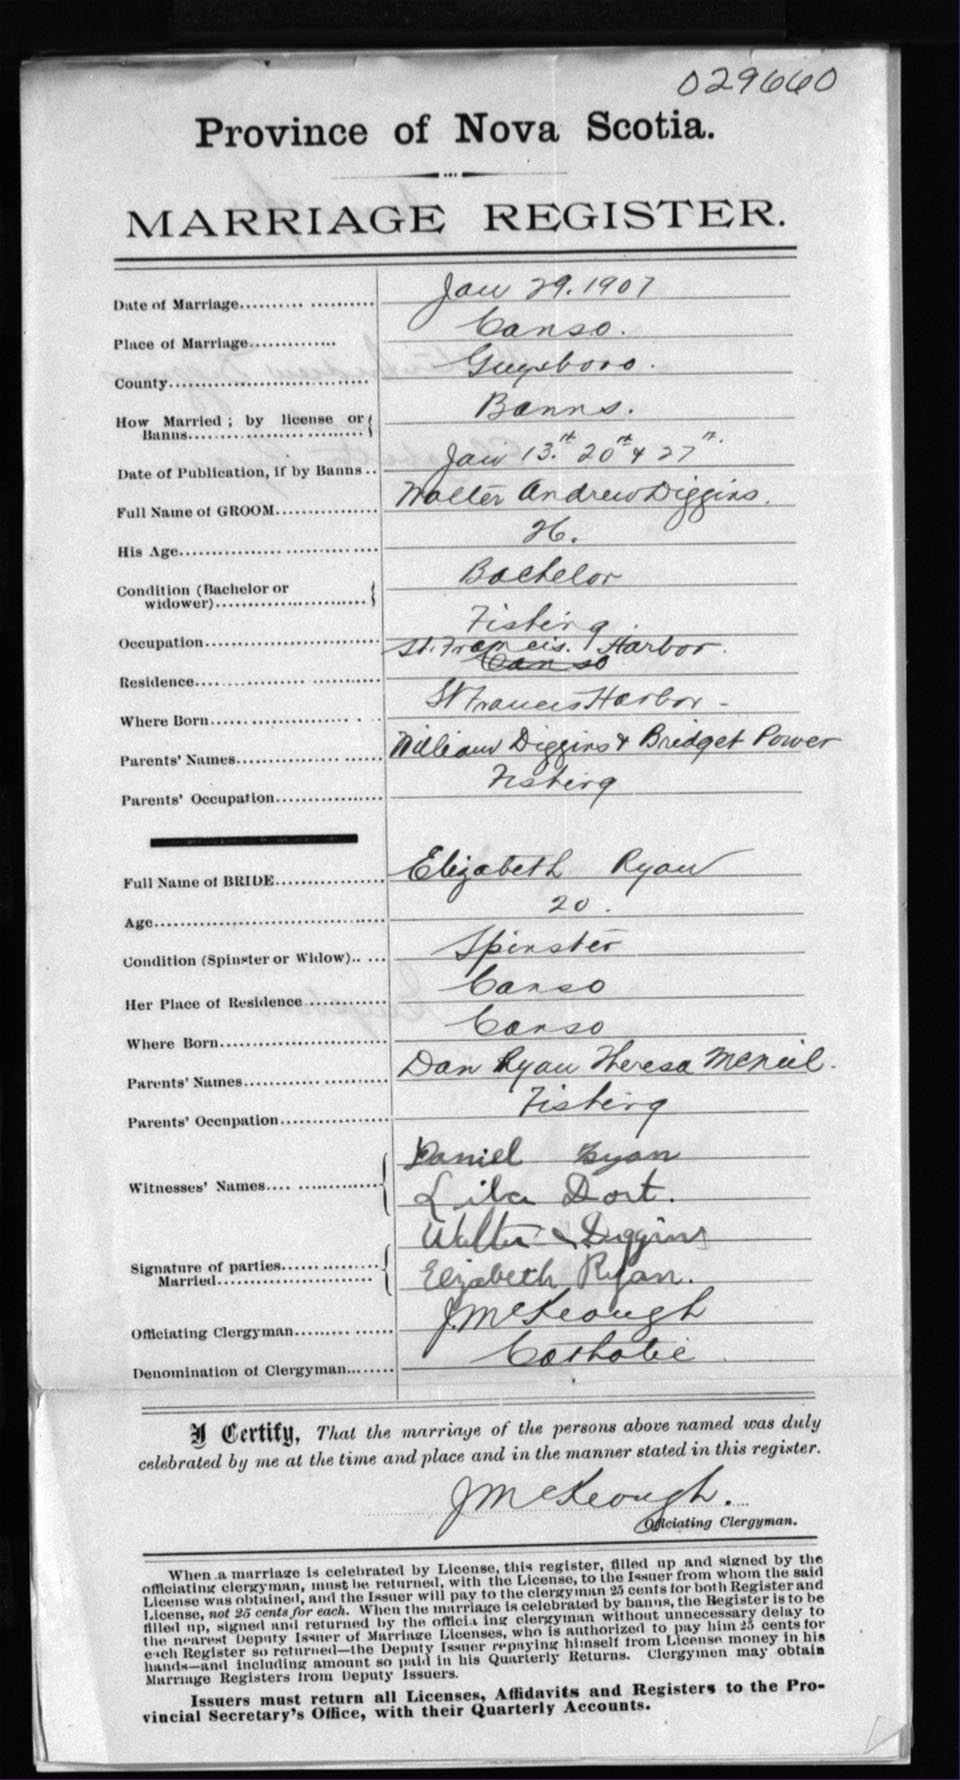 029660
Province of Nova Scotia.
MARRIAGE REGISTER.
Date of Marriage.................... Jan 29. 1907
Place of Marriage............. Canso.
County................................ Guysboro.
How Married ; by license or
Banns............................ Banns.
Date of Publication, if by Banns.. Jan 13.th 20th & 27th.
Full Name of GROOM............... Walter Andrew Diggins.
His Age............................... 26.
Condition (Bachelor or
widower)........................ Bachelor
Occupation........................... Fishing
St. Francis. Harbor.
Residence............................ Canso
Where Born......................... St Francis Harbor -
Parents' Names..................... William Diggins & Bridget Power
Parents' Occupation................ Fishing
Full Name of BRIDE................ Elizabeth Ryan
Age.................................... 20.
Condition (Spinster or Widow)..... Spinster
Her Place of Residence............ Canso
Where Born......................... Canso
Parents' Names..................... Dan Ryan Theresa McNeil.
Parents' Occupation................ Fishing
Daniel Ryan
Witnesses' Names................... Lila Dort.
Walter Diggins
Signature of parties...............
Married......................... Elizabeth Ryan.
Officiating Clergyman.............. J. McKeough
Denomination of Clergyman........ Catholic
I Certify, That the marriage of the persons above named was duly
celebrated by me at the time and place and in the manner stated in this register.
J McKeough.
Officiating Clergyman.
When a marriage is celebrated by License, this register, filled up and signed by the
officiating clergyman, must be returned, with the License, to the Issuer from whom the said
License was obtained, and the Issuer will pay to the clergyman 25 cents for both Register and
License, not 25 cents for each. When the marriage is celebrated by banns, the Register is to be
filled up, signed and returned by the officia ing clergyman without unnecessary delay to
the nearest Deputy Issuer of Marriage Licenses, who is authorized to pay him 25 cents for
each Register so returned—the Deputy Issuer repaying himself from License money in his
hands—and including amount so paid in his Quarterly Returns. Clergymen may obtain
Marriage Registers from Deputy Issuers.
Issuers must return all Licenses, Affidavits and Registers to the Pro-
vincial Secretary's Office, with their Quarterly Accounts.